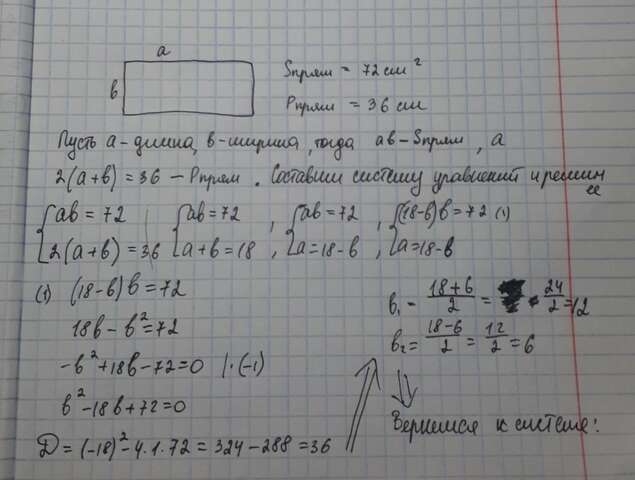 a
в
Sпрям = 72 см²
Pпрям = 36 см
Пусть a-длина, в-ширина, тогда aв - Sпрям, а
2(a+в) = 36 - Pпрям. Составим систему уравнений и решим
ее
{aв = 72 {aв = 72 , {aв = 72 , {(18-в)в = 72 (1)
{2(a+в) = 36 {a+в = 18 , {a = 18-в , {a = 18-в
(1) (18-в)в = 72
18в - в² = 72
-в² + 18в - 72 = 0 | ·(-1)
в² - 18в + 72 = 0
D = (-18)² - 4·1·72 = 324 - 288 = 36
в₁ = (18+6)/2 = 24/2 = 12
в₂ = (18-6)/2 = 12/2 = 6
Вернемся к системе: